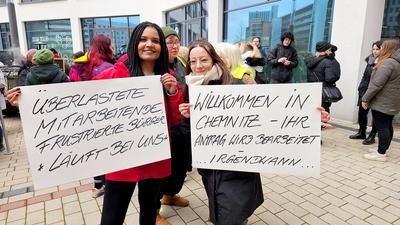 ÜBERLASTETE
MITARBEITENDE,
FRUSTRIERTE BÜRGER
LÄUFT BEI UNS
WILLKOMMEN IN
CHEMNITZ - IHR
ANTRAG WIRD BEARBEITET
... IRGENDWANN ...